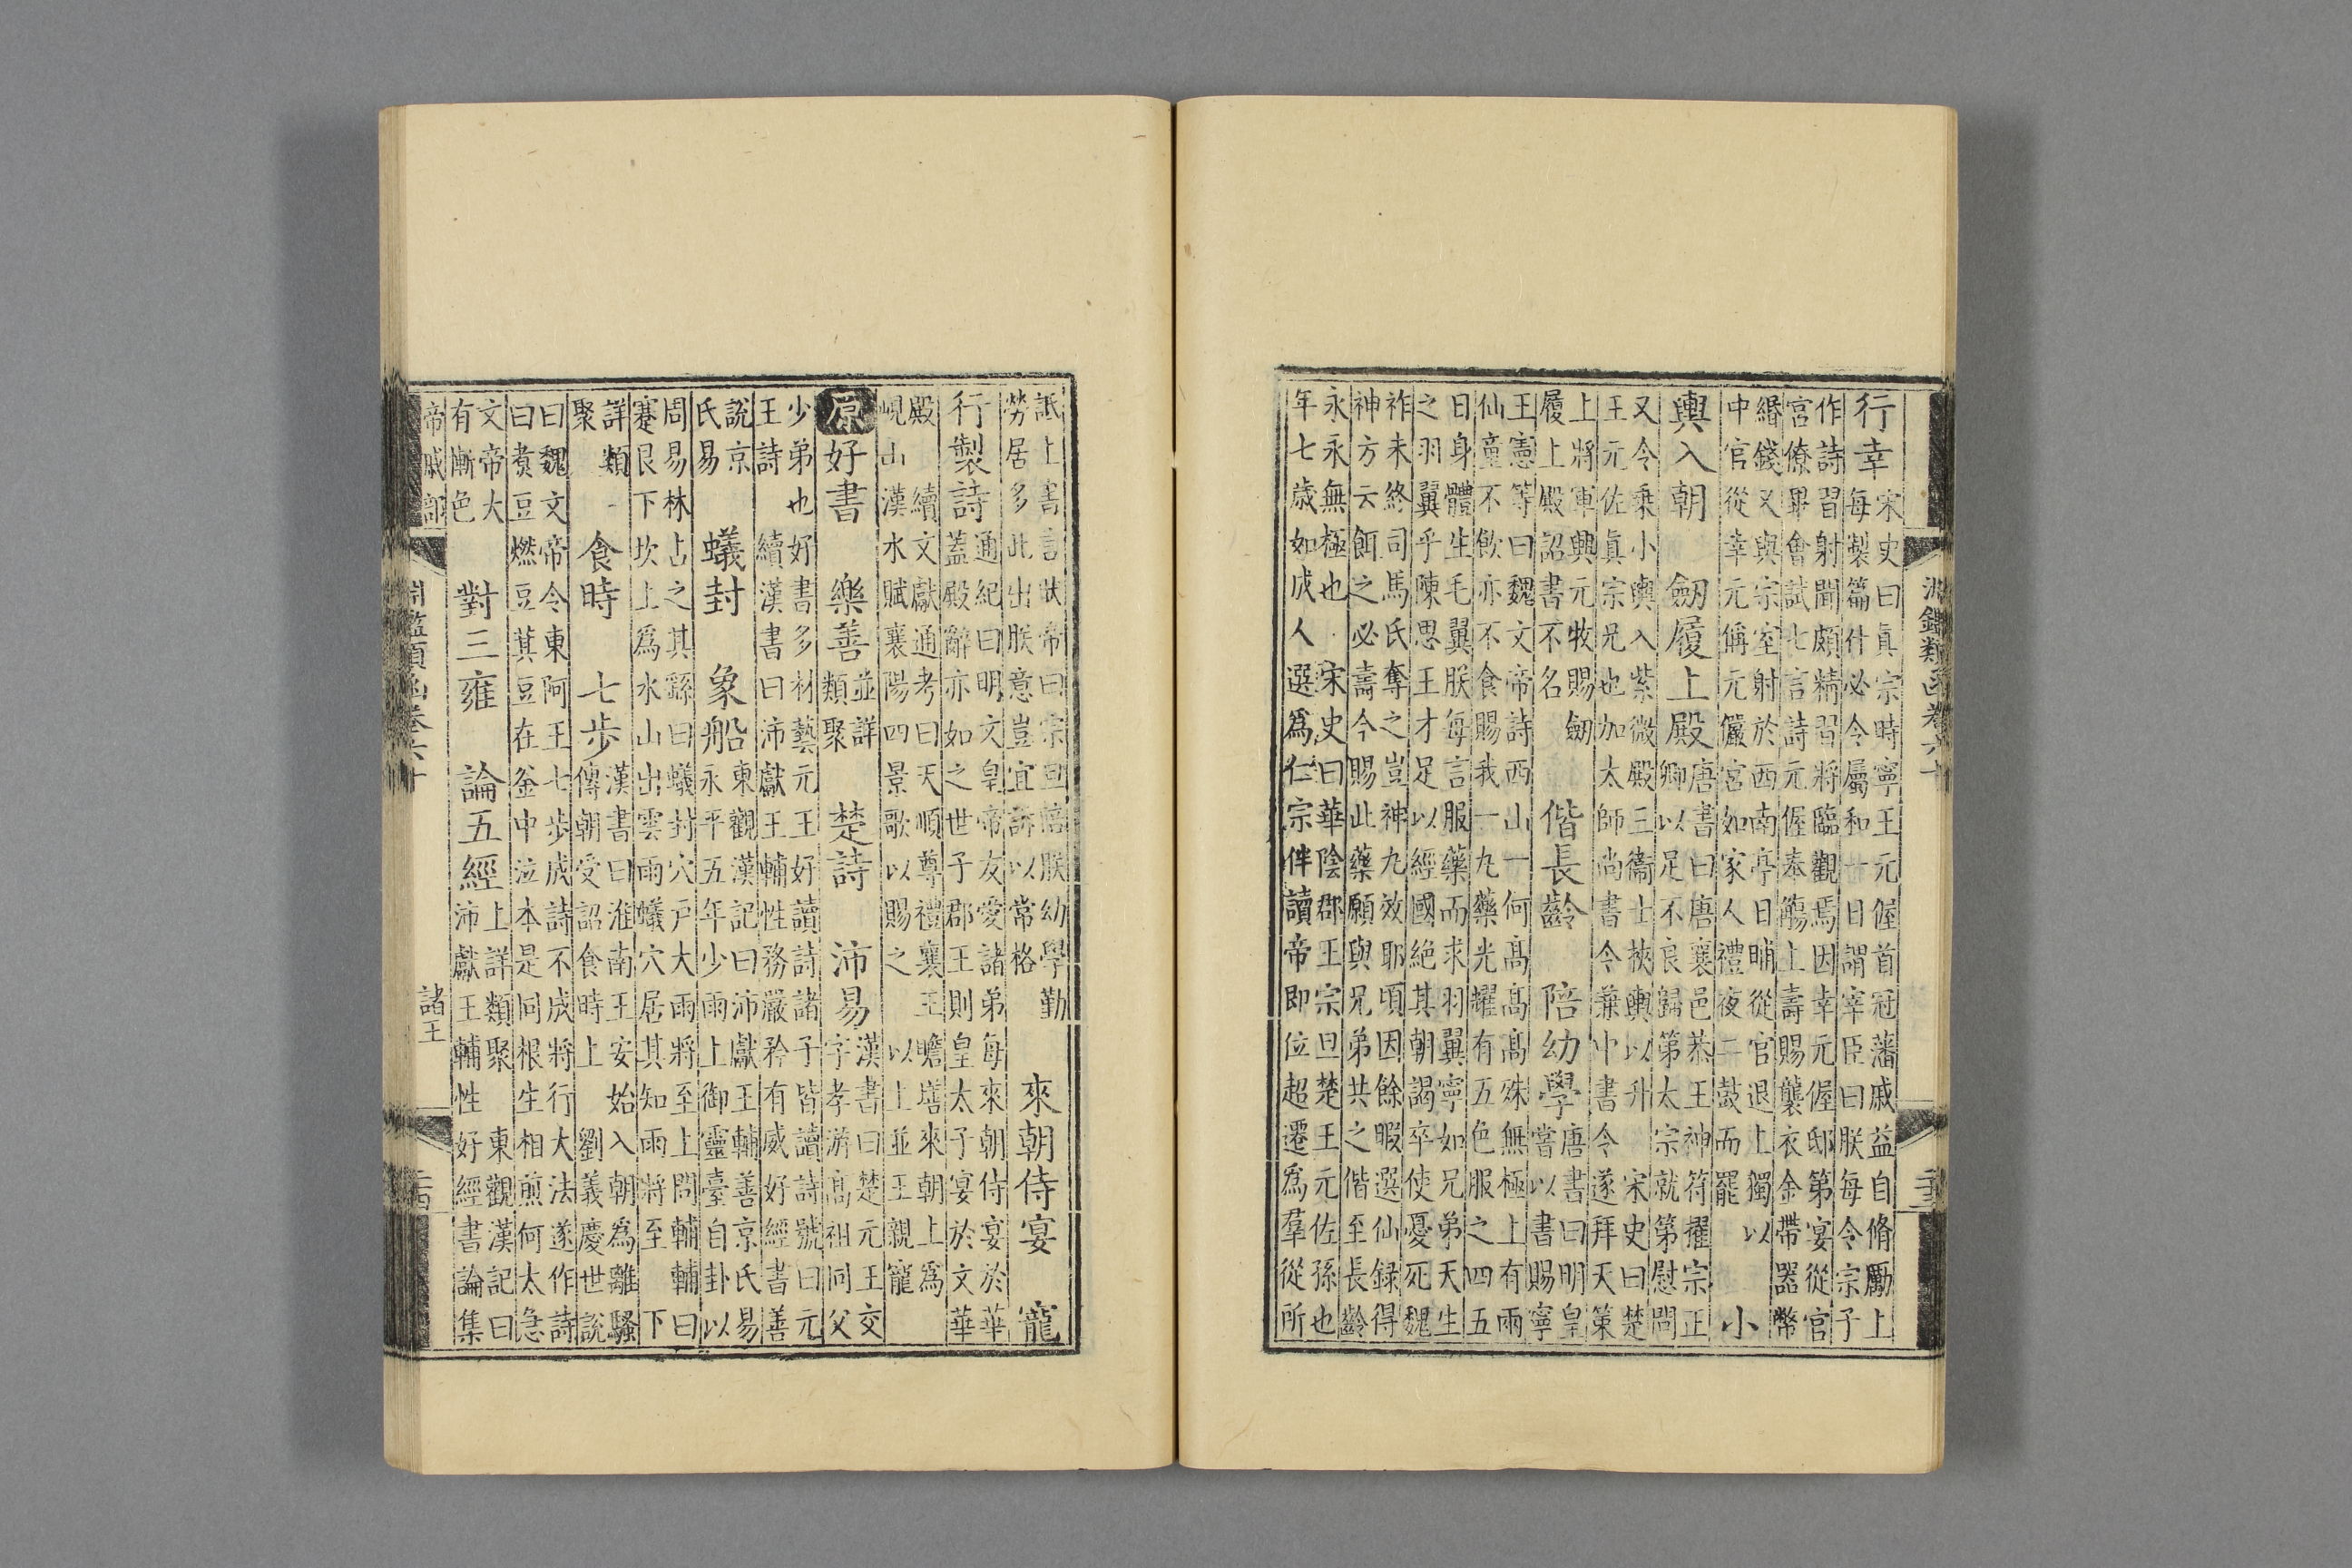 行幸
宋史曰眞宗時寧王元偓首冠藩戚益自脩勵上
每製篇什必令屬和一日謂宰臣曰朕每令宗子
作詩習射聞頗精習將臨觀焉因幸元偓邸第宴從官
宮僚畢會試七言詩元偓奉觴上壽賜襲衣金帶器幣
緡錢又與宗室射於西南亭日晡從官退上獨以
中官從幸元偁元儼宮如家人禮夜二鼓而罷
小
輿入朝
劒履上殿
唐書曰唐襄邑恭王神符擢宗正
卿以足不良歸第太宗就第慰問
又令乘小輿入紫微殿三衛士挾輿以升
宋史曰楚
王元佐眞宗兄也加太師尚書令兼中書令遂拜天策
上將軍興元牧賜劒
履上殿詔書不名
偕長齡
陪幼學
唐書曰明皇
嘗以書賜寧
王憲等曰魏文帝詩西山一何高高高殊無極上有兩
仙童不飲亦不食賜我一丸藥光耀有五色服之四五
日身體生毛翼朕每言服藥而求羽翼寧如兄弟天生
之羽翼乎陳思王才足以經國絶其朝謁卒使憂死魏
祚未終司馬氏奪之豈神丸效耶頃因餘暇選仙録得
神方云餌之必壽今賜此藥願與兄弟共之偕至長齡
永永無極也
宋史曰華陰郡王宗旦楚王元佐孫也
年七歳如成人選爲仁宗伴讀帝即位超遷爲羣從所
詆上書言狀帝曰宗旦陪朕幼學勤
勞居多此出朕意豈宜訴以常格
來朝侍宴
寵
行製詩
通紀曰明文皇帝友愛諸弟每來朝侍宴於華
蓋殿辭亦如之世子郡王則皇太子宴於文華
殿
續文獻通考曰天順尊禮襄王瞻墡來朝上爲
峴山漢水賦襄陽四景歌以賜之
以上並王親寵
原
好書
樂善
並詳
類聚
楚詩
沛易
漢書曰楚元王交
字孝游高祖同父
少弟也好書多材藝元王好讀詩諸子皆讀詩號曰元
王詩
續漢書曰沛獻王輔性務嚴矜有威好經書善
說京
氏易
蟻封
象船
東觀漢記曰沛獻王輔善京氏易
永平五年少雨上御靈臺自卦以
周易林占之其繇曰蟻封穴戸大雨將至上問輔輔曰
蹇艮下坎上爲水山出雲雨蟻穴居其知雨將至
下
詳類
聚
食時
七步
漢書曰淮南王安始入朝爲離騷
傳朝受詔食時上
劉義慶世説
曰魏文帝令東阿王七歩成詩不成將行大法遂作詩
曰煑豆燃豆萁豆在釜中泣本是同根生相煎何太急
文帝大
有漸色
對三雍
論五經
上詳類聚
東觀漢記曰
沛獻王輔性好經書論集
帝戚部
淵鑑類函卷六十
諸王